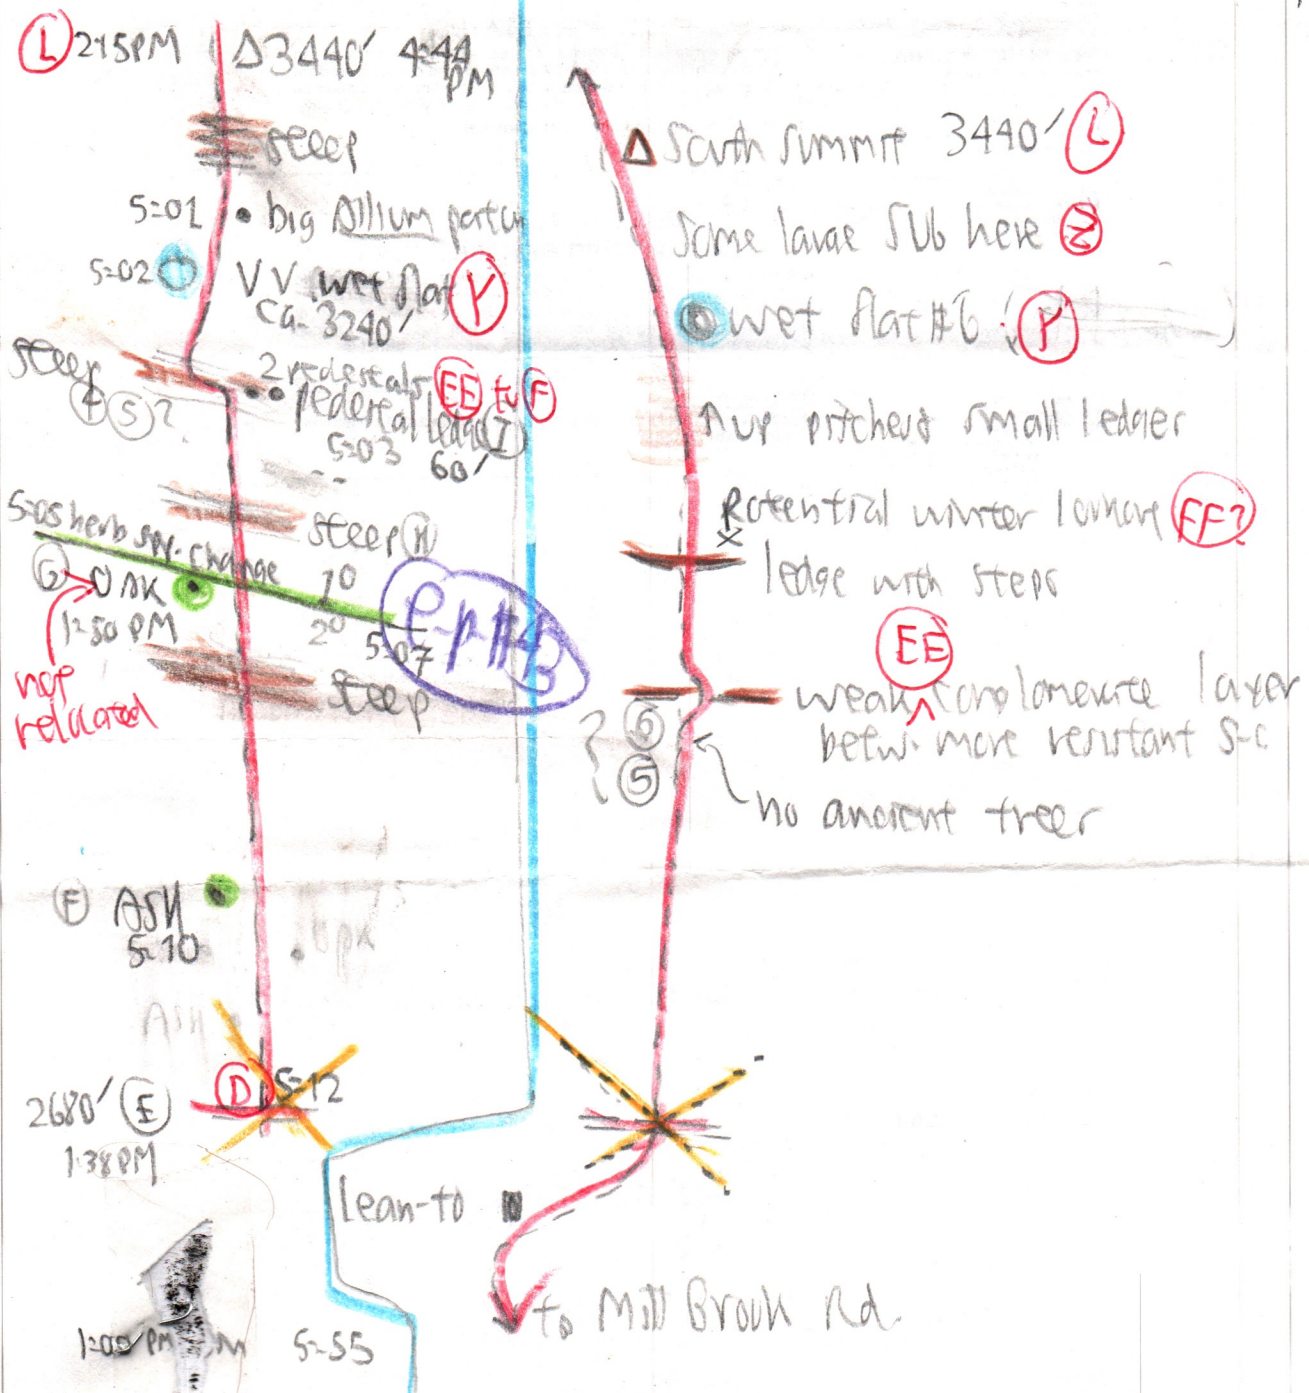 L 2:15PM Δ3440' 4:44 PM
steep
5:01 • big Allium patch
5:02 VV wet flat Y
ca. 3240'
steep
2 pedestals EE to F
4 5?
pedestal ledge I
5:03 60'
steep H
5:05 herb spp. change
G OAK
1:50 PM
1°
2°
5:07
e-p-#4B
not
relocated
steep
F ASH
5:10
ASH
D 5:12
2680' E
1:38PM
Lean-to
1:00 PM
5:55
Δ South Summit 3440' L
Some large SUB here Z
wet flat #6 Y
↑ up pitches & small ledges
Potential winter lookout FF?
x
ledge with steps
EE
weak conglomerate layer
betw. more resistant s-c
6
5
no ancient trees
to Mill Brook Rd.